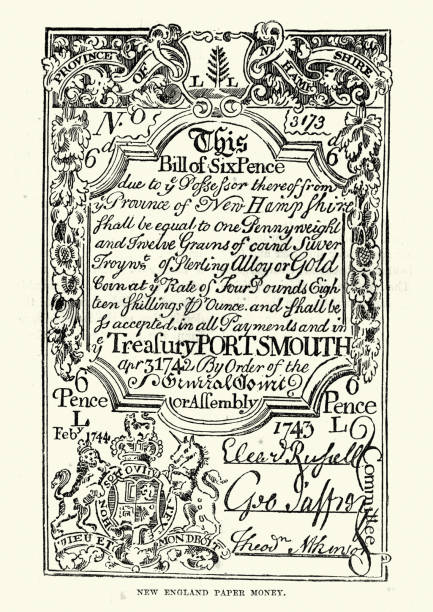 PROVINCE OF N HAMP SHIRE
L L
No 3173
6d 6d
This
Bill of Six Pence
due to ye Possessor thereof from
ye Province of New Hampshire
shall be equal to One Pennyweight
and Twelve Grains of coind Silver
Troy wt. of Sterling Alloy or Gold
Coin at ye Rate of Four Pounds Eigh
teen Shillings pr Ounce. and shall be
so accepted in all Payments and in
ye Treasury PORTSMOUTH
Apr 3 1742 By Order of the
General Court
or Assembly
6 6
Pence Pence
L L
Feby 1744 1743
HONI SOIT QUI MAL Y PEN
DIEU ET MON DROI
Eleazr Russell
Geo Jaffrey
Theodr Atkinson
Committee
NEW ENGLAND PAPER MONEY.